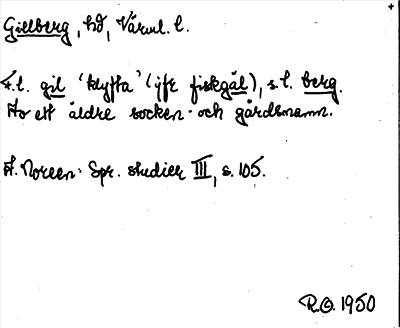 Gillberg, hd, Värml. l.
F.l. gil 'klyfta' (jfr fiskgäl), s.l. berg.
Ho ett äldre socken- och gårdsnamn.
A. Noreen: Spr. studier III, s. 105.
R.O. 1950